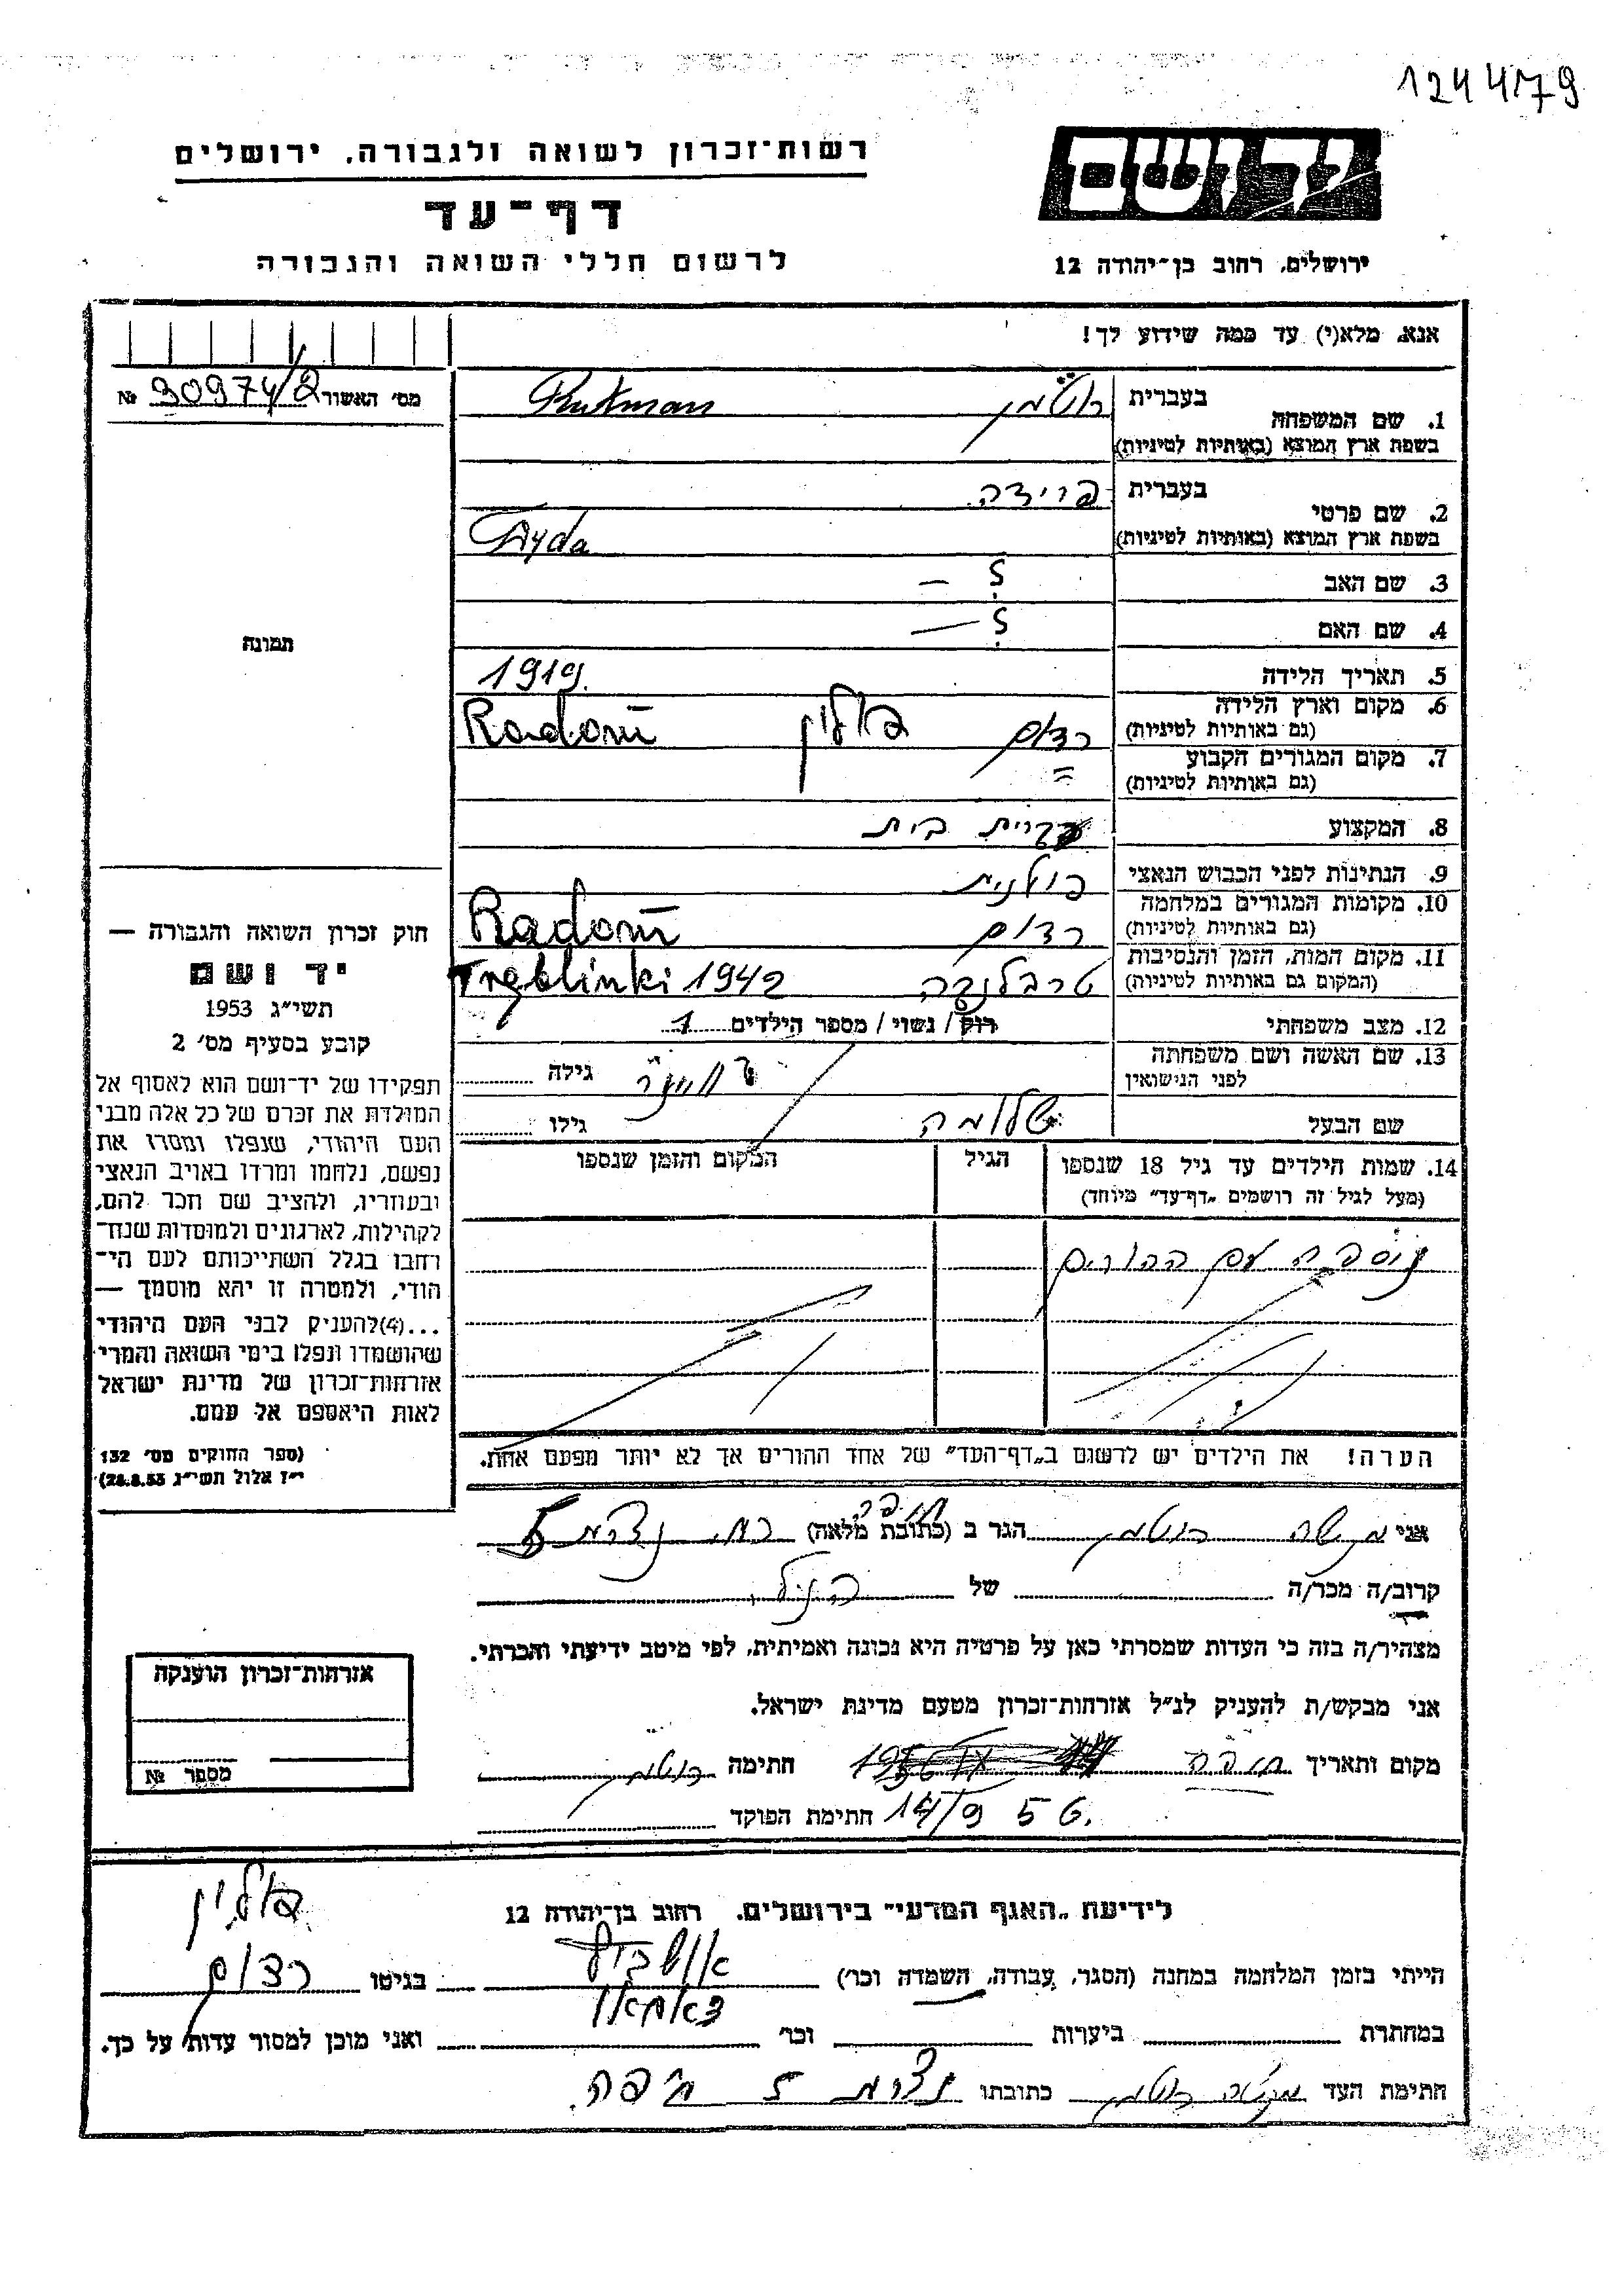 1244179
רשות־זכרון לשואה ולגבורה. ירושלים
דף־עד
לרשום חללי השואה והגבורה
יד ושם
ירושלים, רחוב בן־יהודה 12
אנא, מלא(י) עד כמה שידוע לך!
מס׳ האשור 30974/2 №
תמונה
בעברית רוטמן Rutman
1. שם המשפחה
בשפת ארץ המוצא (באותיות לטיניות)
בעברית פרידה
2. שם פרטי
בשפת ארץ המוצא (באותיות לטיניות) Fryda
3. שם האב ? —
4. שם האם ? —
5. תאריך הלידה 1919.
6. מקום וארץ הלידה רדום פולין Radom
(גם באותיות לטיניות)
7. מקום המגורים הקבוע =
(גם באותיות לטיניות)
8. המקצוע עקרית בית
9. הנתינות לפני הכבוש הנאצי פולנית
10. מקומות המגורים במלחמה רדום Radom
(גם באותיות לטיניות)
11. מקום המות, הזמן והנסיבות טרבלינקה Treblinki 1942
(המקום גם באותיות לטיניות)
12. מצב משפחתי רוק / נשוי / מספר הילדים 1
13. שם האשה ושם משפחתה גילה
לפני הנישואין
שם הבעל שלומה גילו
14. שמות הילדים עד גיל 18 שנספו הגיל המקום והזמן שנספו
(מעל לגיל זה רושמים „דף־עד״ מיוחד)
נוספה עם ההורים
הערה! את הילדים יש לרשום ב„דף־העד״ של אחד ההורים אך לא יותר מפעם אחת.
חוק זכרון השואה והגבורה —
יד ושם
תשי״ג 1953
קובע בסעיף מס׳ 2
תפקידו של יד־ושם הוא לאסוף אל
המולדת את זכרם של כל אלה מבני
העם היהודי, שנפלו ומסרו את
נפשם, נלחמו ומרדו באויב הנאצי
ובעוזריו, ולהציב שם וזכר להם,
לקהילות, לארגונים ולמוסדות שנח־
רבו בגלל השתייכותם לעם הי־
הודי, ולמטרה זו יהא מוסמך —
...(4)להעניק לבני העם היהודי
שהושמדו ונפלו בימי השואה והמרי
אזרחות־זכרון של מדינת ישראל
לאות היאספם אל עמם.
(ספר החוקים מס׳ 132
י״ז אלול תשי״ג 28.8.53)
אני משה רוטמן הגר ב (כתובת מלאה) חיפה רח. נצרת 5
קרוב/ה מכר/ה של הנ״ל
מצהיר/ה בזה כי העדות שמסרתי כאן על פרטיה היא נכונה ואמיתית, לפי מיטב ידיעתי והכרתי.
אני מבקש/ת להעניק לנ״ל אזרחות־זכרון מטעם מדינת ישראל.
מקום ותאריך חיפה חתימה רוטמן
14/9 56. חתימת הפוקד
אזרחות־זכרון הוענקה
מספר №
לידיעת „האגף המדעי״ בירושלים. רחוב בן־יהודה 12
הייתי בזמן המלחמה במחנה (הסגר, עבודה, השמדה וכו׳) אושביץ דאכאו בגיטו רדום פולין
במחתרת ביערות וכו׳ ואני מוכן למסור עדות על כך.
חתימת העד משה רוטמן כתובתו נצרת 5 חיפה.